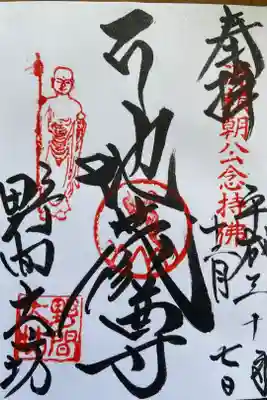 奉拝
頼朝公念持佛
平成三十年
月七日
地蔵尊
野間大坊
野間